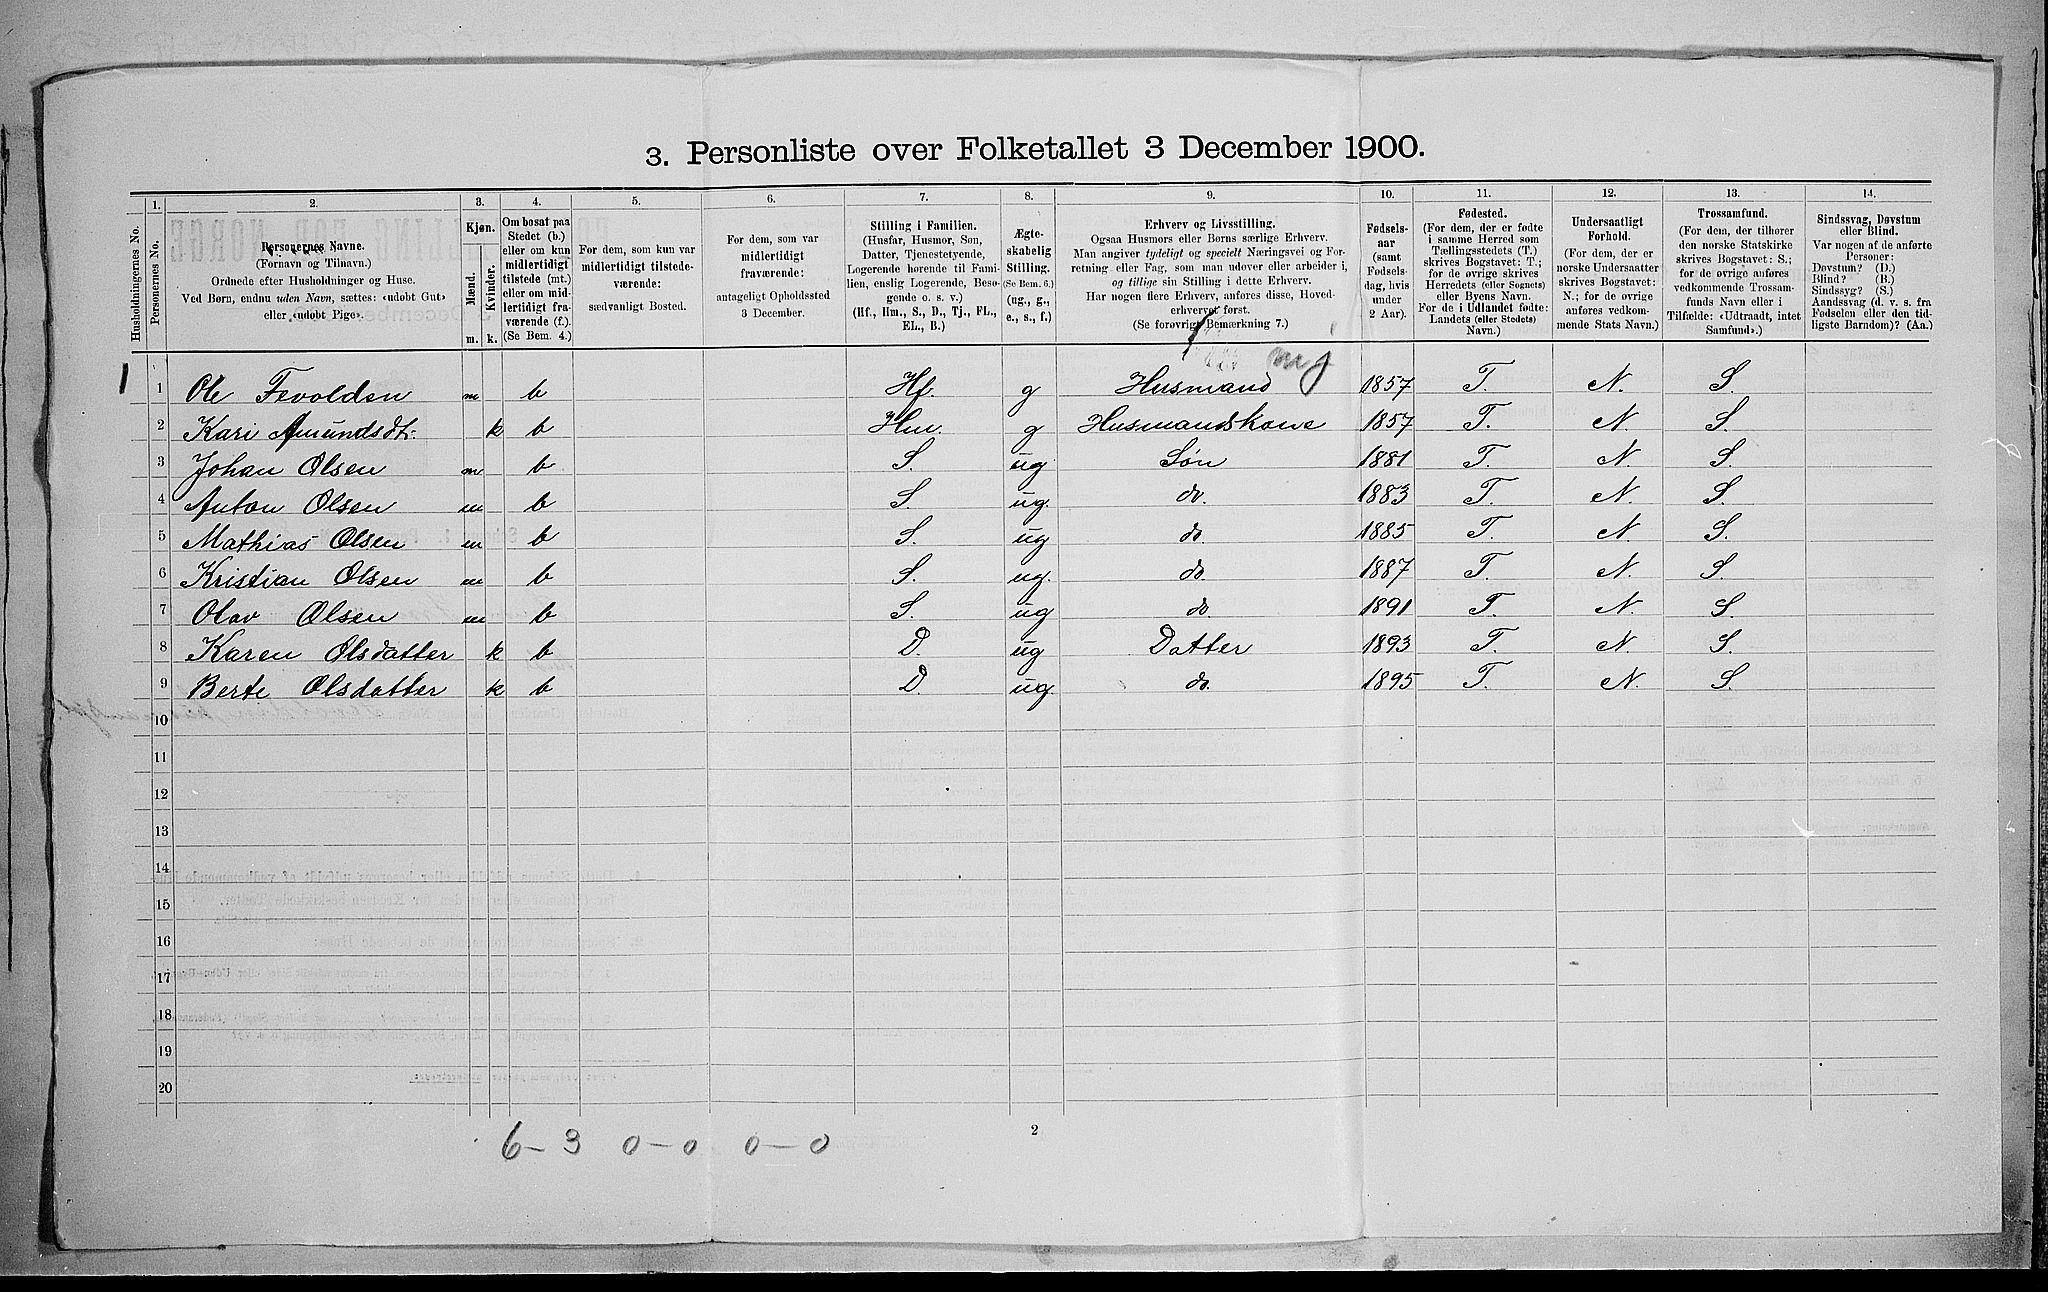 3. Personliste over Folketallet 3 December 1900.
1. 2. 3. 4. 5. 6. 7. 8. 9. 10. 11. 12. 13. 14.
Husholdningernes No.
Personernes No.
Personernes Navne.
(Fornavn og Tilnavn.)
Ordnede efter Husholdninger og Huse.
Ved Børn, endnu uden Navn, sættes: «udøbt Gut»
eller «udøbt Pige».
Kjøn.
Mænd.
Kvinder.
m. k.
Om bosat paa
Stedet (b.)
eller om kun
midlertidigt
tilstede (mt.)
eller om mid-
lertidigt fra-
værende (f.).
(Se Bem. 4.)
For dem, som kun var
midlertidigt tilstede-
værende:
sædvanligt Bosted.
For dem, som var
midlertidigt
fraværende:
antageligt Opholdssted
3 December.
Stilling i Familien.
(Husfar, Husmor, Søn,
Datter, Tjenestetyende,
Logerende hørende til Fami-
lien, enslig Logerende, Besø-
gende o. s. v.)
(Hf., Hm., S., D., Tj., FL.,
EL., B.)
Ægte-
skabelig
Stilling.
(Se Bem. 6.)
(ug., g.,
e., s., f.)
Erhverv og Livsstilling.
Ogsaa Husmors eller Børns særlige Erhverv.
Man angiver tydeligt og specielt Næringsvei og For-
retning eller Fag, som man udøver eller arbeider i,
og tillige sin Stilling i dette Erhverv.
Har nogen flere Erhverv, anføres disse, Hoved-
erhvervet først.
(Se forøvrigt Bemærkning 7.)
Fødsels-
aar
(samt
Fødsels-
dag, hvis
under
2 Aar).
Fødested.
(For dem, der er fødte
i samme Herred som
Tællingsstedets (T.)
skrives Bogstavet: T.;
for de øvrige skrives
Herredets (eller Sognets)
eller Byens Navn.
For de i Udlandet fødte:
Landets (eller Stedets)
Navn.)
Undersaatligt
Forhold.
(For dem, der er
norske Undersaatter
skrives Bogstavet:
N.; for de øvrige
anføres vedkom-
mende Stats Navn.)
Trossamfund.
(For dem, der tilhører
den norske Statskirke
skrives Bogstavet: S.;
for de øvrige anføres
vedkommende Trossam-
funds Navn eller i
Tilfælde: «Udtraadt, intet
Samfund».)
Sindssvag, Døvstum
eller Blind.
Var nogen af de anførte
Personer:
Døvstum? (D.)
Blind? (B.)
Sindssyg? (S.)
Aandssvag (d. v. s. fra
Fødselen eller den tid-
ligste Barndom)? (Aa.)
mj
1 1 Ole Fevolden m b Hf. g Husmand 1857 T. N. S.
2 Kari Amundsdt. k b Hm. g Husmandskone 1857 T. N. S.
3 Johan Olsen m b S. ug Søn 1881 T. N. S.
4 Anton Olsen m b S. ug. do. 1883 T. N. S.
5 Mathias Olsen m b S. ug do. 1885 T. N. S.
6 Kristian Olsen m b S. ug. do. 1887 T. N. S.
7 Olav Olsen m b S. ug do 1891 T. N. S.
8 Karen Olsdatter k b D. ug Datter 1893 T. N. S.
9 Berte Olsdatter k b D ug. do. 1895 T. N. S.
10
11
12
13
14
15
16
17
18
19
20
6-3 0-0 0-0
2